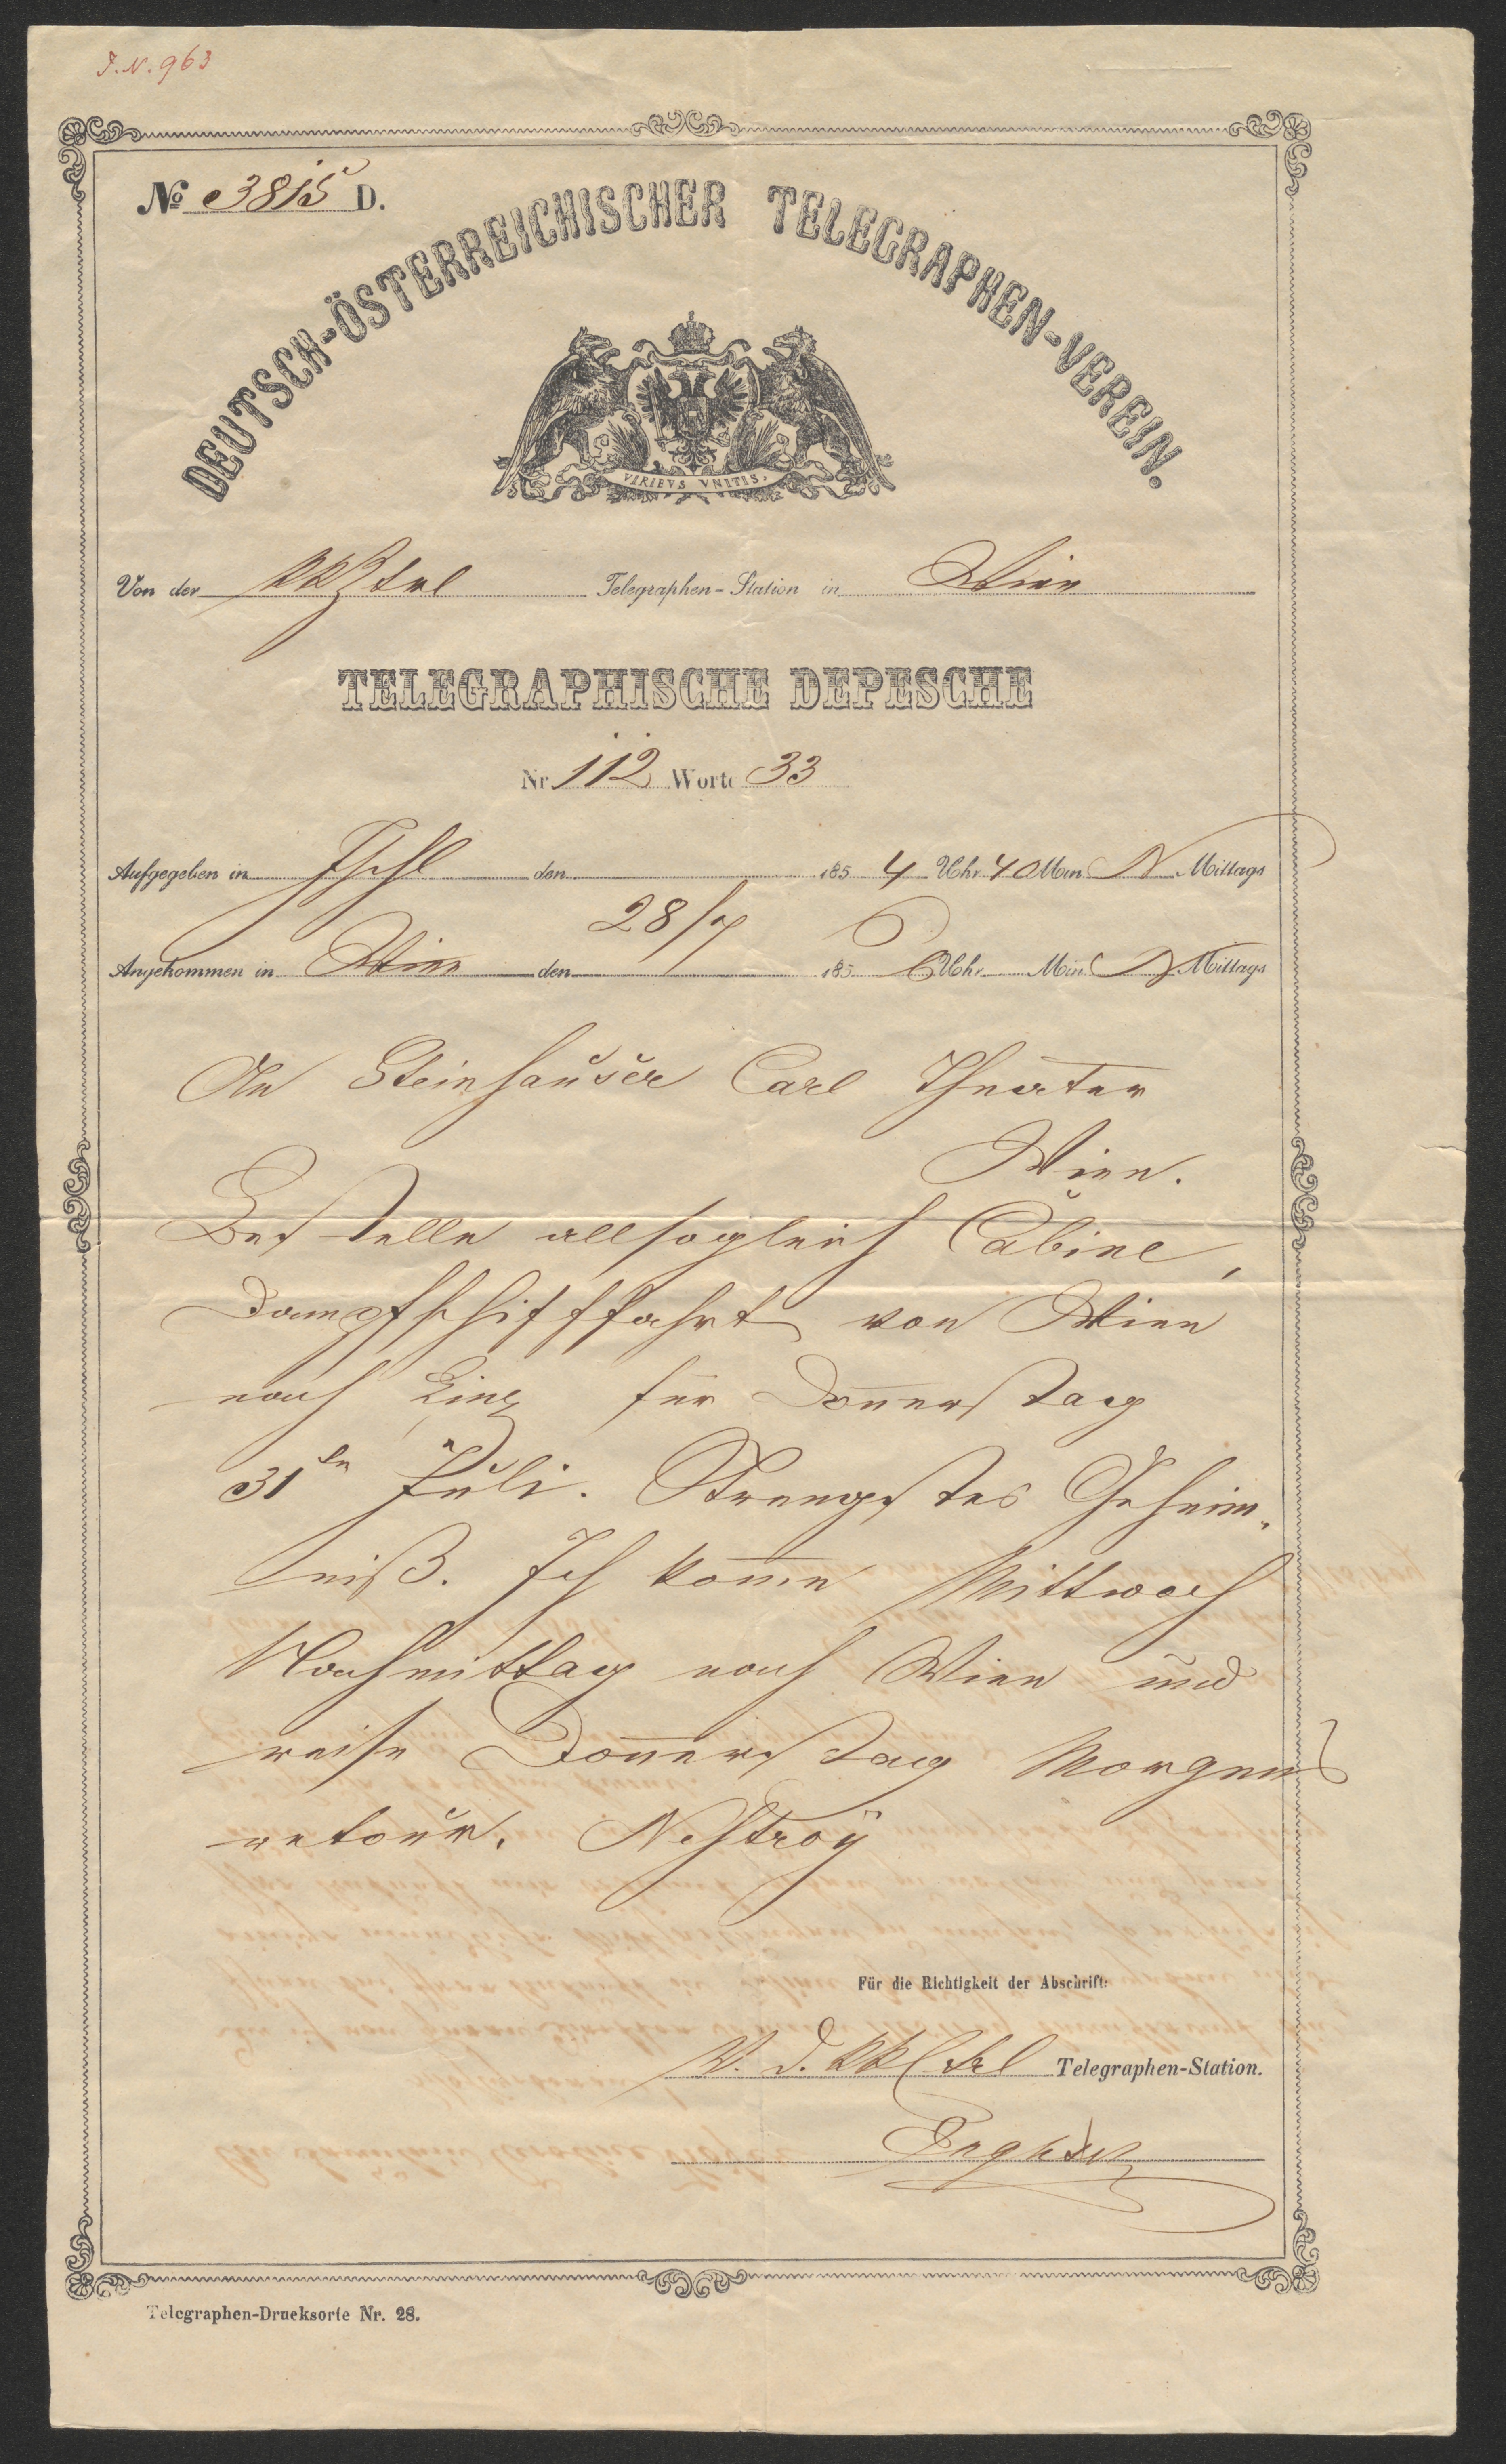 J. N. 963
No 3815 D.
DEUTSCH-ÖSTERREICHISCHER TELEGRAPHEN-VEREIN.
VIRIBVS VNITIS.
Von der Telegraphen-Station in Wien
TELEGRAPHISCHE DEPESCHE
Nr. 112 Worte 33
Aufgegeben in Ischl den 185 4 Uhr 40 Min N Mittags
28/7
Angekommen in Wien den 185 6 Uhr Min N Mittags
An Steinhauser Carl Theater
Wien.
Bestelle allsogleich Cabine,
Dampfschifffahrt von Wien
nach Linz für Donnerstag
31ten Juli. Strengstes Geheim-
niß. Ich kom̄e Mittwoch
Nachmittag nach Wien und
reise Don̄erstag Morgens
retour. Nestroÿ
Für die Richtigkeit der Abschrift:
Telegraphen-Station.
Telegraphen-Drucksorte Nr. 28.